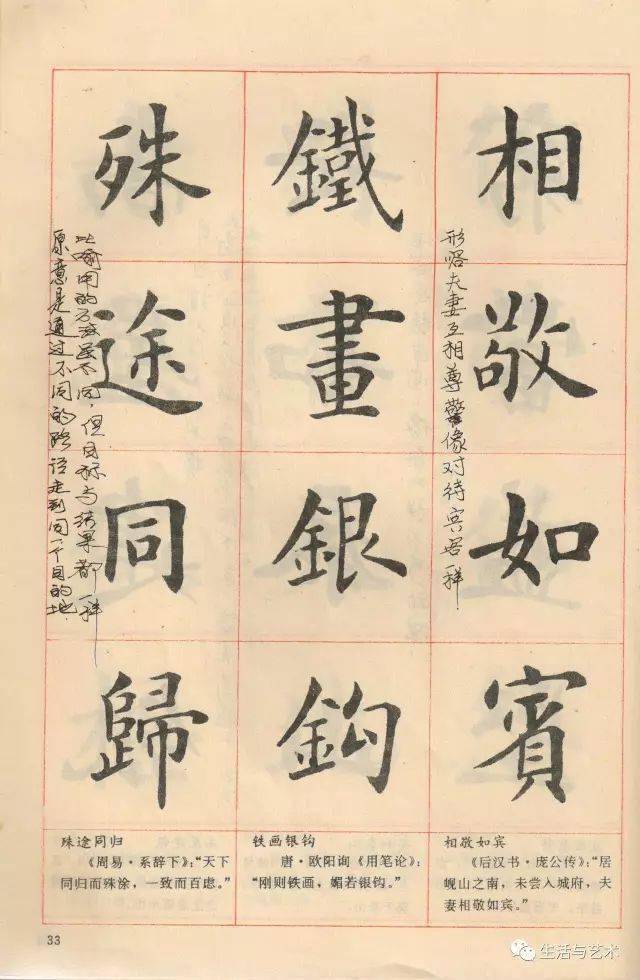 相敬如賓
形容夫妻互相尊警像对待宾客一样
鐵畫銀鈎
殊途同歸
比喻用的方法虽不同，但目标与结果都一样
原意是通过不同的路径走到同一个目的地
殊途同归
《周易·系辞下》：“天下
同归而殊涂，一致而百虑。”
铁画银钩
唐·欧阳询《用笔论》：
“刚则铁画，媚若银钩。”
相敬如宾
《后汉书·庞公传》：“居
岘山之南，未尝入城府，夫
妻相敬如宾。”
33
生活与艺术